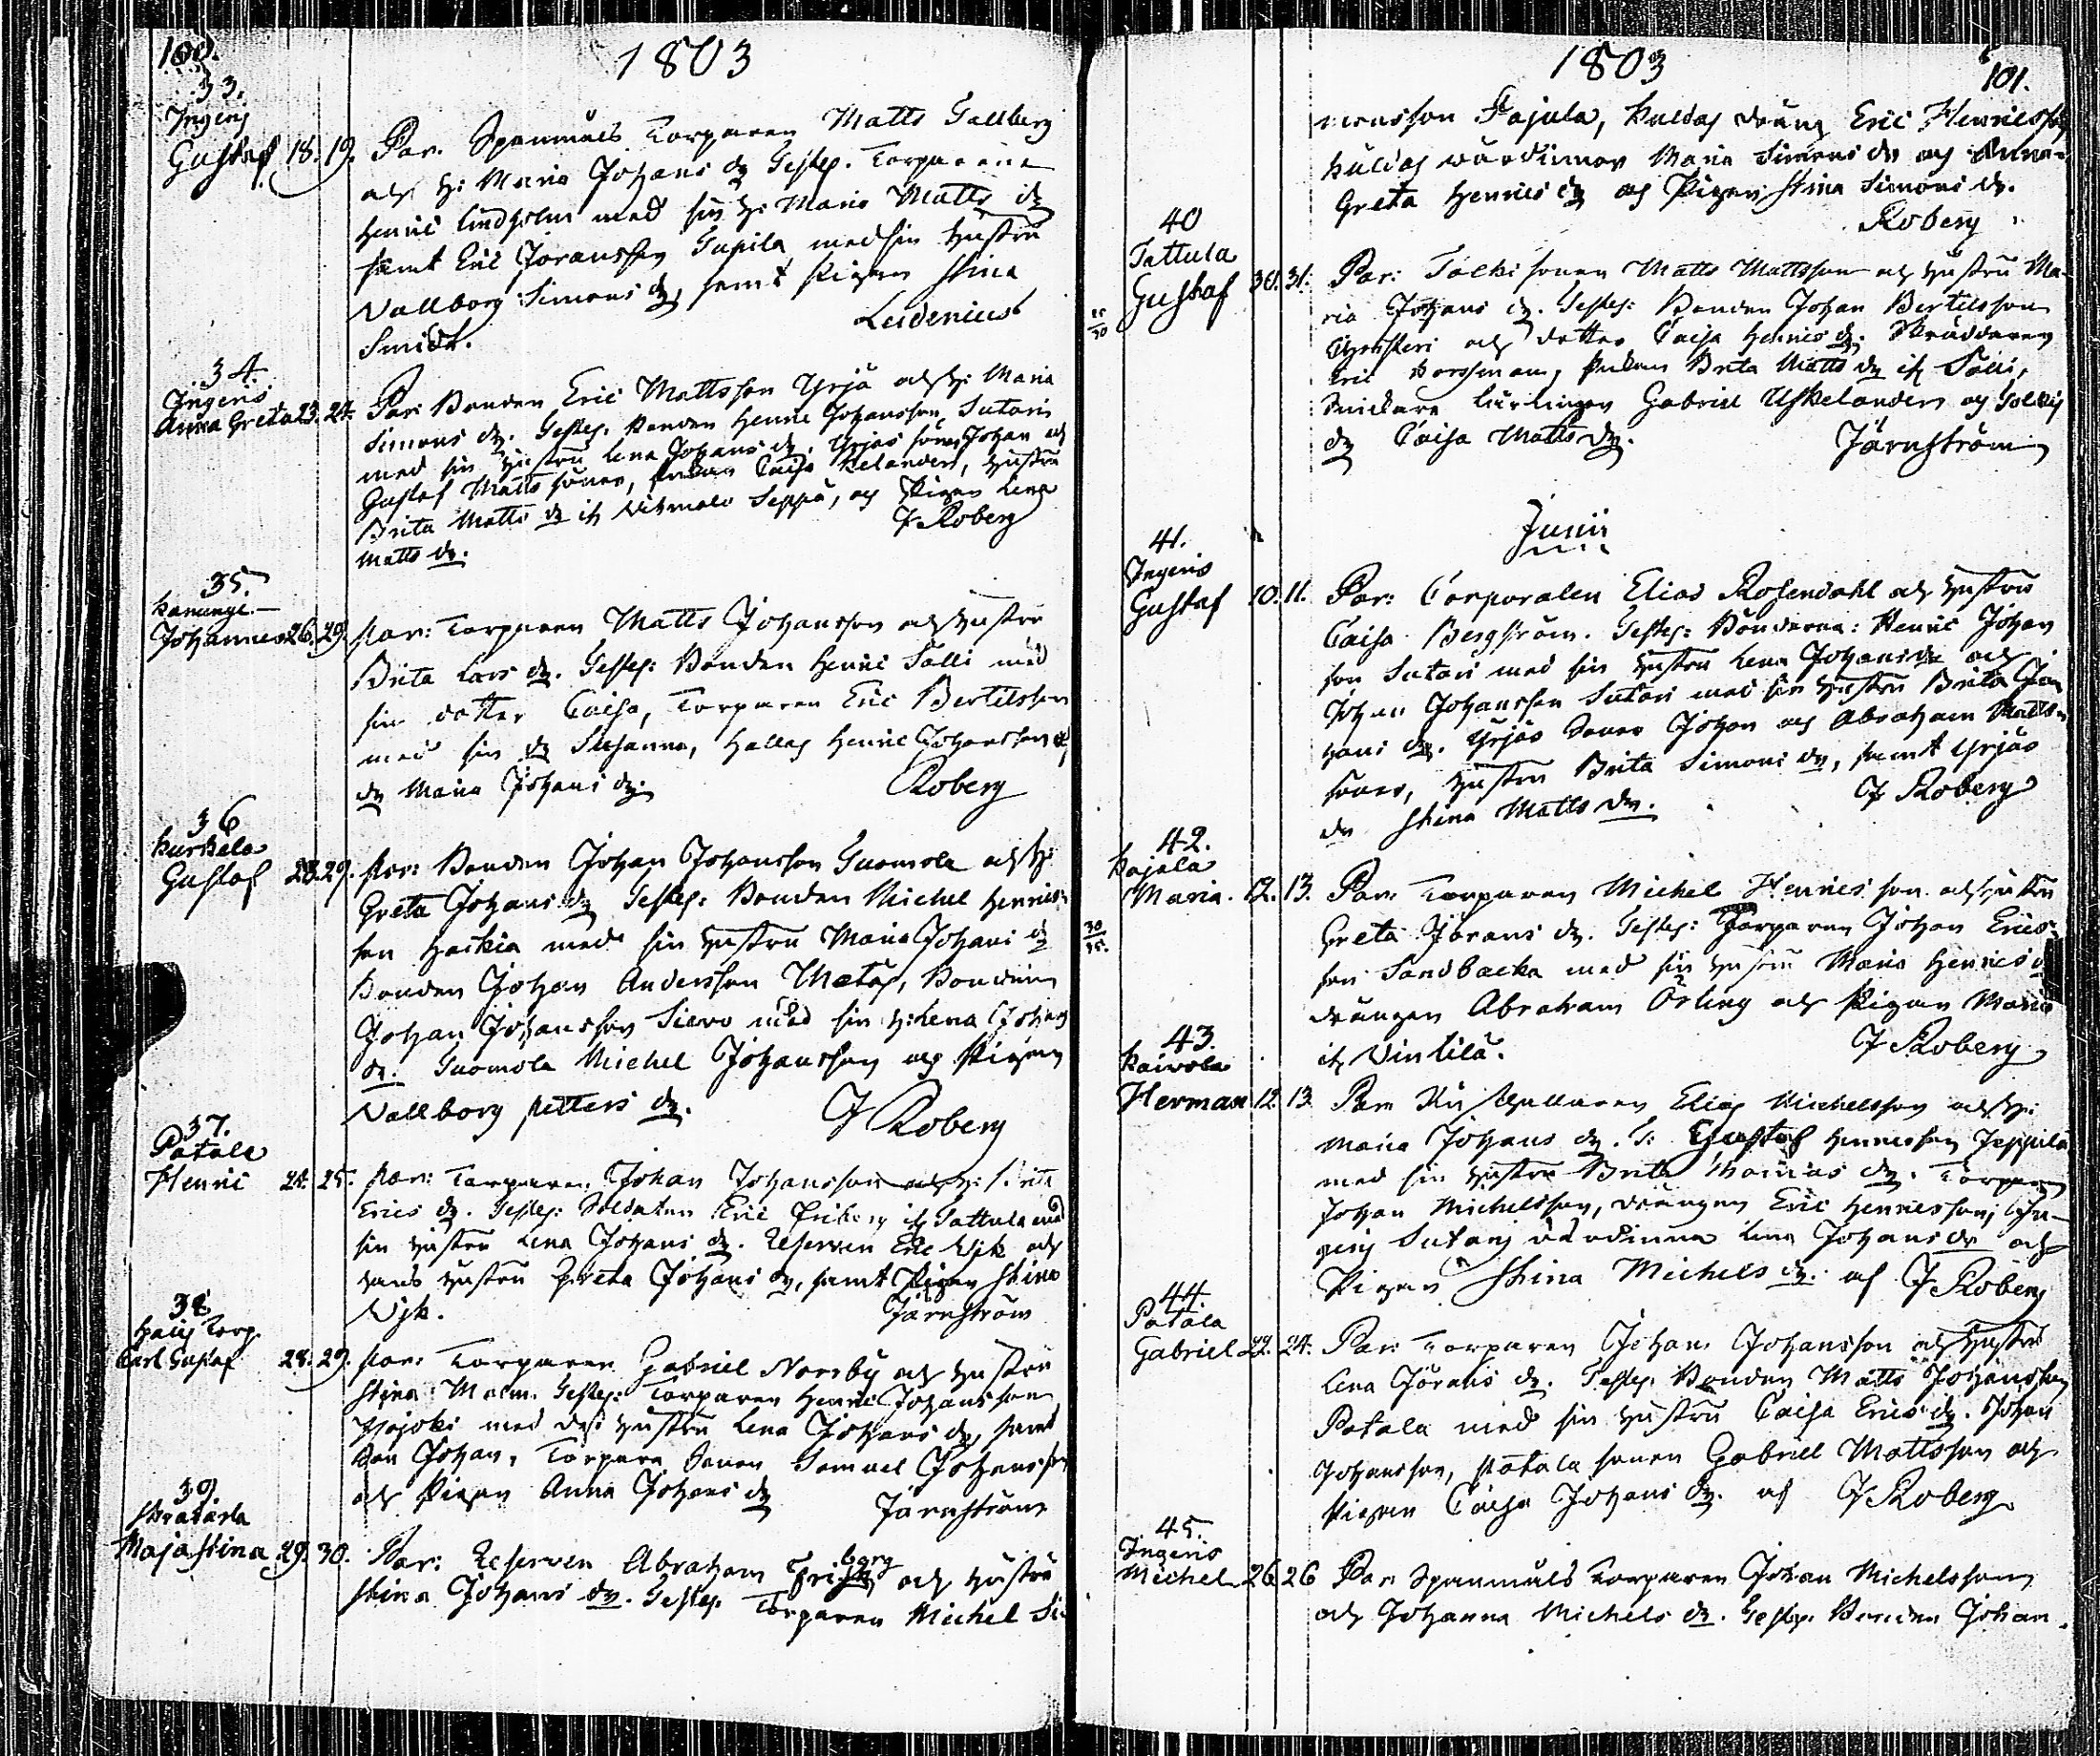 100.
1803
33.
Ingeris
Gustaf 18. 19. Par. Spanmåls Torparen Matts Tallberg
och h: Maria Johans dr Testes. Torparene
Henric Lindholm med sin h: Maria Matts dr
samt Eric Joransson Supila med sin hustru
Vallborg Simons dr, samt Pigan Stina
Smidt. Leidenius
34.
Ingeris
Anna Greta 23. 24. Par: Bonden Eric Mattsson Yrjä och h: Maria
Simons dr. Testes. Bonden Henric Johansson Sutari
med sin hustru Lena Johans dr, Yrjas söner Johan och
Gustaf Matts söner, Caisa Helander, hustru
Brita Matts dr Seppä, och Pigan Lena
Matts dr. J Roberg
35.
Johannes 26. 29. Par: Torparen Matts Johansson och hustru
Brita Lars dr. Testes: Bonden Henric Salli med
sin dotter Caisa, Torparen Eric Bertilsson
med sin dr Susanna, Henric Johansson
dr Maria Johans dr. Roberg
36
Kurkela
Gustaf 28. 29. Par: Bonden Johan Johansson Suomola och h:
Greta Johans dr Testes: Bonden Michel Henrics
son Haikia med sin hustru Maria Johans dr
Bonden Johan Andersson Mataj, Bonden
Johan Johansson Siewo med sin h: Lena Johans
dr. Suomola Michel Johansson och Pigan
Vallborg Petters dr. J Roberg
37.
Patala
Henric 24. 25. Par: Torparen Johan Johansson och h:
Erics dr. Testes: Soldaten Eric Friberg Tattula med
sin hustru Lena Johans dr. Reserven Eric Wik och
hans hustru Greta Johans dr, samt Pigan Stina
Wik. Järnström
38.
Torp.
Carl Gustaf 28. 29. Par: Torparen Gabriel Norrby och hustru
Stina Malm. Testes: Torparen Henric Johansson
Pajoki med dess hustru Lena Johans dr, samt
son Johan, Torpare Sonen Samuel Johansson
och Pigan Anna Johans dr Järnström
39.
Maja Stina 29. 30. Par: Reserven Abraham Friberg och hustru
Stina Johans dr. Testes. Torparen Michel Si-
1803
101.
monsson Pajula, dräng Eric Henricsson
värdinnor Maria Simons dr och Anna-
Greta Henrics dr och Pigan Stina Simons dr.
Roberg
40
Tattula
Gustaf 30. 31. Par: sonen Matts Mattsson och hustru Ma-
ria Johans dr. Testes: Bonden Johan Bertilsson
och dotter Caisa Henrics dr. Skräddaren
Eric Brita Matts dr
Snickare Lärlingen Gabriel och
dr Caisa Matts dr. Järnström
Junii
41.
Ingeris
Gustaf 10. 11. Par: Corporalen Elias Rosendahl och hustru
Caisa Bergström. Testes: Bönderna: Henric Johan
son Sutari med sin hustru Lena Johans dr och
Johan Johansson Sutari med sin hustru Brita Jo
hans dr. Yrjäs Söner Johan och Abraham Matts
söner, hustru Brita Simons dr, samt Yrjäs
dr Stina Matts dr. J Roberg
42.
Kajala
Maria. 12. 13. Par: Torparen Michel Henricsson och hustru
Greta Jörans dr. Testes: Torparen Johan Erics-
son Sandbacka med sin hustru Maria Henrics dr
drängen Abraham Örling och Pigan Maria
Vintilä. J Roberg
43.
Kaivola
Herman 12. 13. Par Elias Michelsson och h:
Maria Johans dr. T: Gustaf Henricsson Seppilä
med sin hustru Brita dr. Torparen
Johan Michelsson, drängen Eric Henricsson, In-
geris Sutari värdinna Lena Johans dr och
Pigan Stina Michels dr. af J Roberg
44.
Patala
Gabriel 22. 24. Par: Torparen Johan Johansson och hustru
Lena Jörans dr. Testes. Bonden Matts Johansson
Patala med sin hustru Caisa Erics dr. Johan
Johansson, Patala sonen Gabriel Mattsson och
Pigan Caisa Johans dr. af J Roberg
45.
Ingeris
Michel 26 26 Par Spanmåls Torparen Johan Michelsson
och Johanna Michels dr. Testes. Bonden Johan